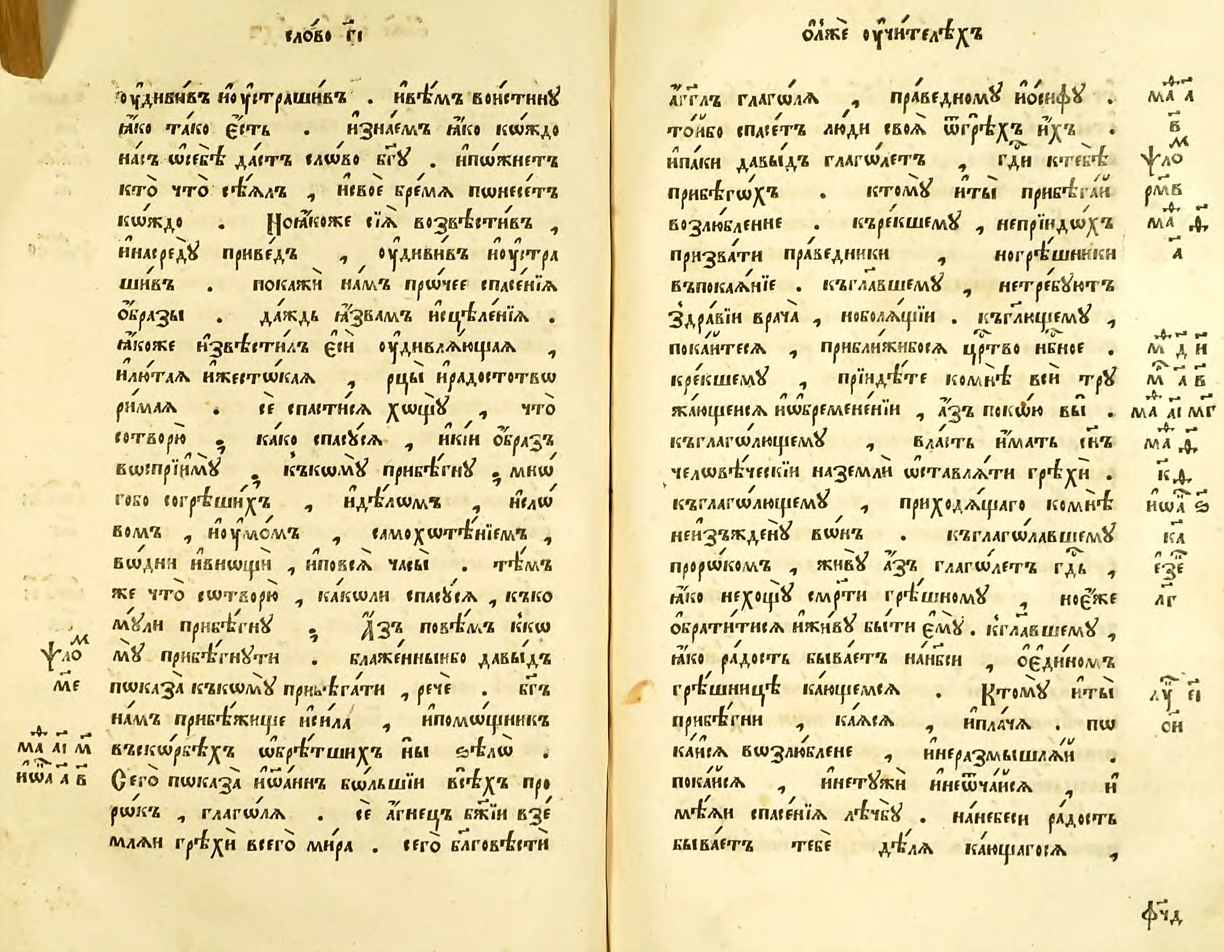 сло́во г҃і
ᲂу҆диви́въ иᲂу҆страши́въ . и҆вѣ́мъ вои́стину
ꙗ҆́ко та́ко є҆́сть . и҆зна́емъ ꙗ҆́ко кѡ́ждо
на́съ ѡ҆себѣ̀ да́стъ сло́во бг҃ꙋ . и҆пѡ́жнетъ
кто̀ что̀ сѣ́ялъ , и҆своѐ бре́мѧ пѡнесе́тъ
кѡ́ждо . Ноꙗ҆́коже сїѧ̀ возвѣсти́въ ,
и҆насредꙋ̀ приве́дъ , ᲂу҆диви́въ иᲂу҆стра
ши́въ . покажѝ на́мъ про́чее спасе́нїѧ
ѻ҆́бразы . да́ждь ꙗ҆́звамъ и҆сцѣле́нїѧ .
ꙗ҆́коже и҆звѣсти́лъ є҆сѝ ᲂу҆дивлѧ́ющаѧ ,
и҆лю́таѧ и҆жестѡ́каѧ , рцы̀ и҆ра́достотвѡ
ри́маѧ . се́ спасти́сѧ хощꙋ̀ , что̀
сотворю̀ ; ка́ко спасꙋ́сѧ , и҆кі́и ѻ҆́бразъ
вѡспрїи́мꙋ ; къкѡ́мꙋ прибѣ́гнꙋ ; мнѡ
гобо согрѣши́хъ , и҆дѣ́лѡмъ , и҆сло́
вомъ , иᲂу҆мо́мъ , самохѡтѣ́нїемъ ,
вѡ́дни и҆внѡщѝ , и҆повсѧ̀ часы̀ . тѣ́мъ
же что̀ сѡтворю̀ , ка́кѡли спасꙋ́сѧ , къко
мꙋ́ли прибѣ́гнꙋ ; А҆́зъ повѣ́мъ к҆кѡ
мꙋ̀ прибѣ́гнꙋти . блаже́нныибо давы́дъ
пѡказа̀ къкѡ́мꙋ прибѣга́ти , речѐ . бг҃ъ
на́мъ прибѣ́жище и҆си́ла , и҆помѡщникъ
въско́рбѣхъ ѡ҆брѣ́тшихъ ны̀ ѕѣлѡ̀ .
Сего̀ пѡказа̀ и҆ѡа́ннъ бѡ́льшїи всѣ́хъ про
рѡ́къ , глаго́лѧ . сѐ а҆́гнецъ бж҃їи взе́
млѧи грѣхѝ всего̀ ми́ра . сего̀ бл҃говѣсти
ѱло́м
ме
ма аі м
и҆ѡа а в
ѻ҆лжѐ ᲂу҆чи́телѣхъ
а҆́гг҃лъ глаго́лѧ , пра́ведномꙋ и҆ѡ́сифꙋ .
то́ибо спасе́тъ лю́ди своѧ̀ ѿгрѣ́хъ и҆́хъ .
и҆па́ки давы́дъ глаго́летъ , гд҇и ктебѣ̀
прибѣго́хъ . ктомꙋ̀ и҆ты̀ прибѣга́й
возлю́бленне . къре́кшемꙋ , непрїидѡ́хъ
призва́ти пра́ведники , ногрѣ́шники
въпокаѧ́нїе . къгла҃вшемꙋ , нетре́бꙋютъ
здра́вїи врача̀ , ноболѧ́щїи . къгл҃ющемꙋ ,
пока́итесѧ , прибли́жибосѧ цр҇тво нб҇ное .
кре́кшемꙋ , прїидѣ́те комнѣ̀ всѝ трꙋ
жа́ющеисѧ и҆ѡ҆бремене́нїи , а҆́зъ поко́ю вы̀ .
къглаго́лющемꙋ , вла́сть и҆́мать сн҃ъ
человѣ́ческїи наземлѝ ѡ҆ставлѧ́ти грѣхѝ .
къглаго́лющемꙋ , приходѧ́щаго комнѣ̀
неи҆зъжденꙋ̀ во́нъ . къглаго́лавшемꙋ
проро́комъ , живꙋ̀ а҆́зъ глаго́летъ гд҇ь ,
ꙗ҆́ко нехощꙋ̀ сме́рти грѣ́шномꙋ , ноє҆́же
ѻ҆брати́тисѧ и҆жи́вꙋ бы́ти є҆мꙋ̀ . кгла҃вшемꙋ ,
ꙗ҆́ко ра́дость быва́етъ нан҃бси , ѻ҆є҆ди́номъ
грѣ́шницѣ ка́ющемсѧ . Ктомꙋ̀ и҆ты̀
прибѣ́гни , ка́ѧсѧ , и҆пла́чѧ . пѡ
ка́исѧ вѡзлю́блене , и҆неразмышлѧ́й .
пока́исѧ , и҆нетꙋжѝ и҆неѿча́исѧ , и҆
мѣ́ѧи спасе́нїѧ лѣчбꙋ̀ . нанебесѝ ра́дость
быва́етъ тебѐ дѣ́лѧ ка́ющагосѧ ,
ма а
в
ѱло́м
рмв
ма ѳ
а
м д и
м а в
ма аі мг
ма ѳ
кѳ
и҆ѡа ѕ
ка
є҆зе
лг
лꙋ еі
ѻ҆и
фч҃д